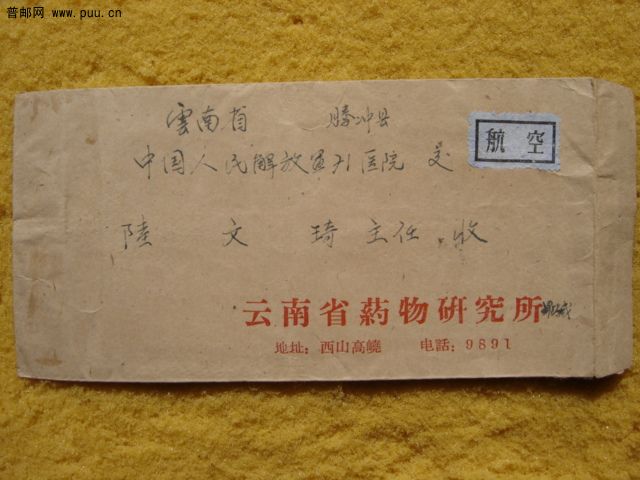 普邮网 www.puu.cn
雲南省 腾冲县
航空
中国人民解放军71医院 交
陸文琦主任 收
云南省药物研究所
地址: 西山高嶢 电話: 9891